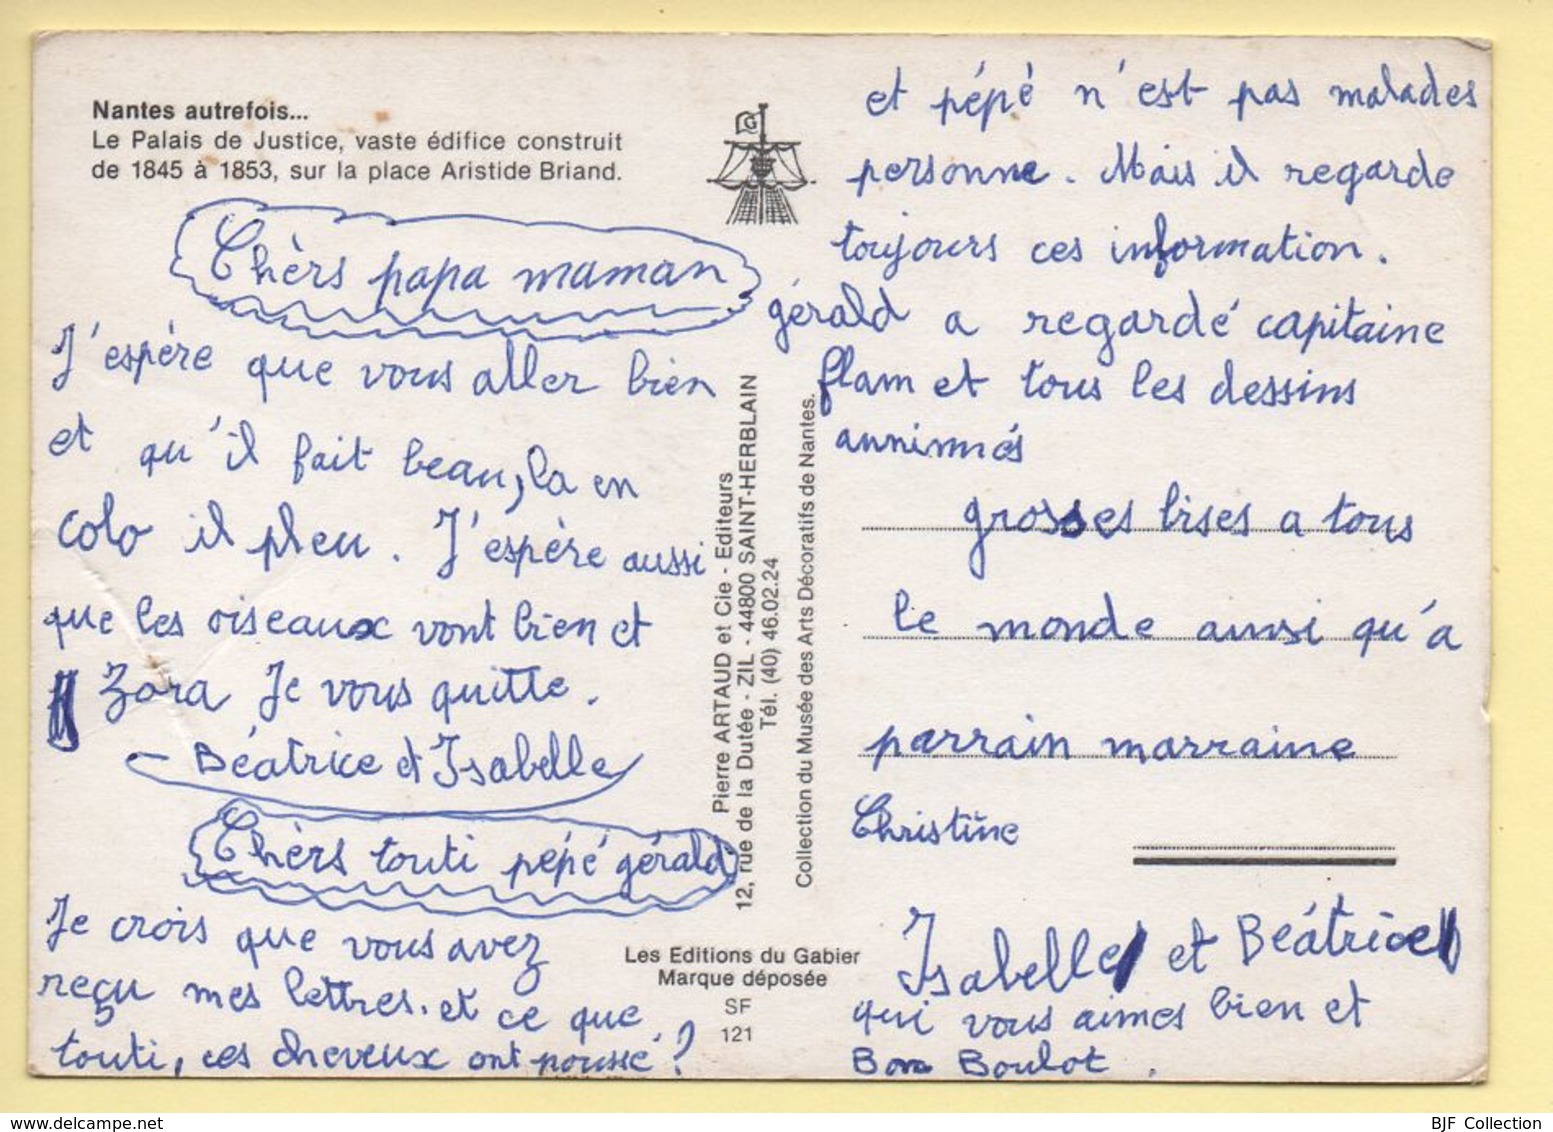 Nantes autrefois...
Le Palais de Justice, vaste édifice construit
de 1845 à 1853, sur la place Aristide Briand.
Chèrs papa maman
J'espère que vous aller bien
et qu'il fait beau, la en
colo il pleu. J'espère aussi
que les oiseaux vont bien et
Zora Je vous quitte.
Béatrice et Isabelle
Chèrs touti pépé gérald
Je crois que vous avez
reçu mes lettres. et ce que
touti, ces cheveux ont poussé ?
Pierre ARTAUD et Cie - Editeurs
12, rue de la Dutée - ZIL - 44800 SAINT-HERBLAIN
Tél. (40) 46.02.24
Collection du Musée des Arts Décoratifs de Nantes.
Les Editions du Gabier
Marque déposée
SF
121
et pépé n'est pas malades
personne. Mais il regarde
toujours ces information.
gérald a regardé capitaine
flam et tous les dessins
annimés
grosses bises a tous
le monde ainsi qu'à
parrain marraine
Christine
Isabelle et Béatrice
qui vous aimes bien et
Bon Boulot.
BJF Collection